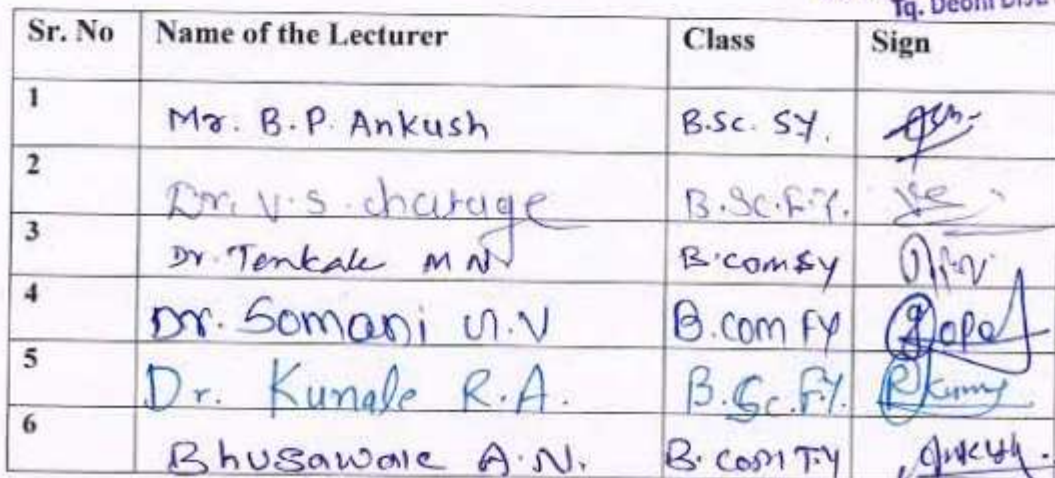 Tq. Deoni Dist
Sr. No Name of the Lecturer Class Sign
1 Mr. B.P. Ankush B.Sc. SY.
2 Dr. V.S. charage B.Sc.F.Y.
3 Dr. Tenkale M N B.com SY
4 Dr. Somani U.V B.com FY
5 Dr. Kunale R.A. B.Sc.F.Y.
6 Bhusawale A.N. B.com T.Y